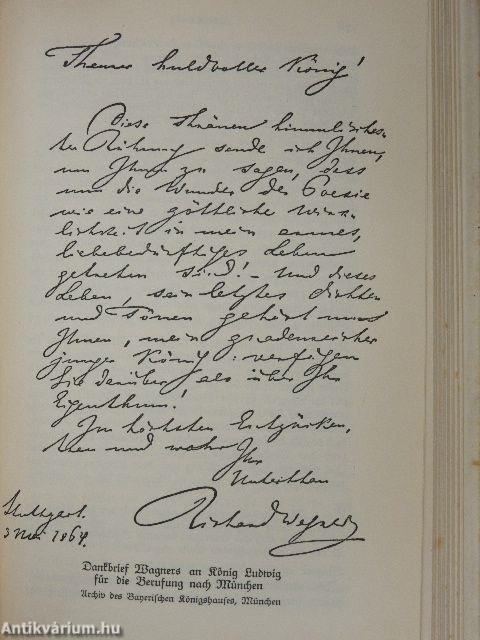 Theurer huldvoller König!
Diese Thränen himmlisches-
ter Rührung sende ich Ihnen,
um Ihnen zu sagen, dass
nun die Wunder der Poesie
wie eine göttliche Wirk-
lichkeit in mein armes,
liebebedürftiges Leben
getreten sind! – Und dieses
Leben, sein letztes Dichten
und Tönen gehört nun
Ihnen, mein gnadenreicher
junger König: verfügen
Sie darüber als über Ihr
Eigenthum!
Im höchsten Entzücken,
treu und wahr
Ihr
Unterthan
Richard Wagner
Stuttgart.
3 Mai 1864.
Dankbrief Wagners an König Ludwig
für die Berufung nach München
Archiv des Bayerischen Königshauses, München
Antikvárium.hu